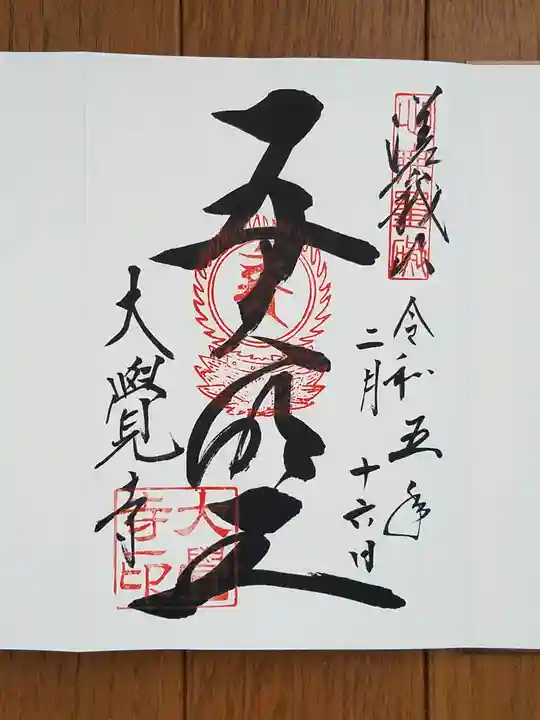 嵯峨
令和五年
二月十六日
五大明王
大覺寺
大覺寺印